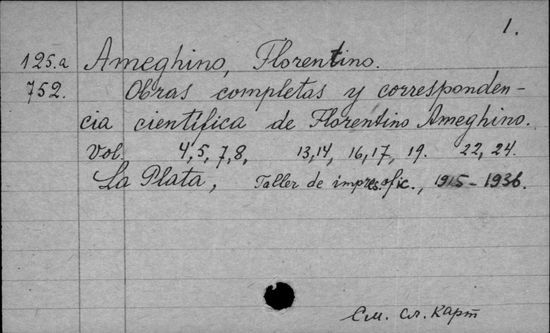 1.
125.a Ameghino, Florentino.
752. Obras completas y corresponden-
cia científica de Florentino Ameghino.
Vol. 4,5, 7,8, 13,14, 16,17, 19. 22, 24.
La Plata, Taller de impres. ofic., 1915-1936.
См. сл. карт